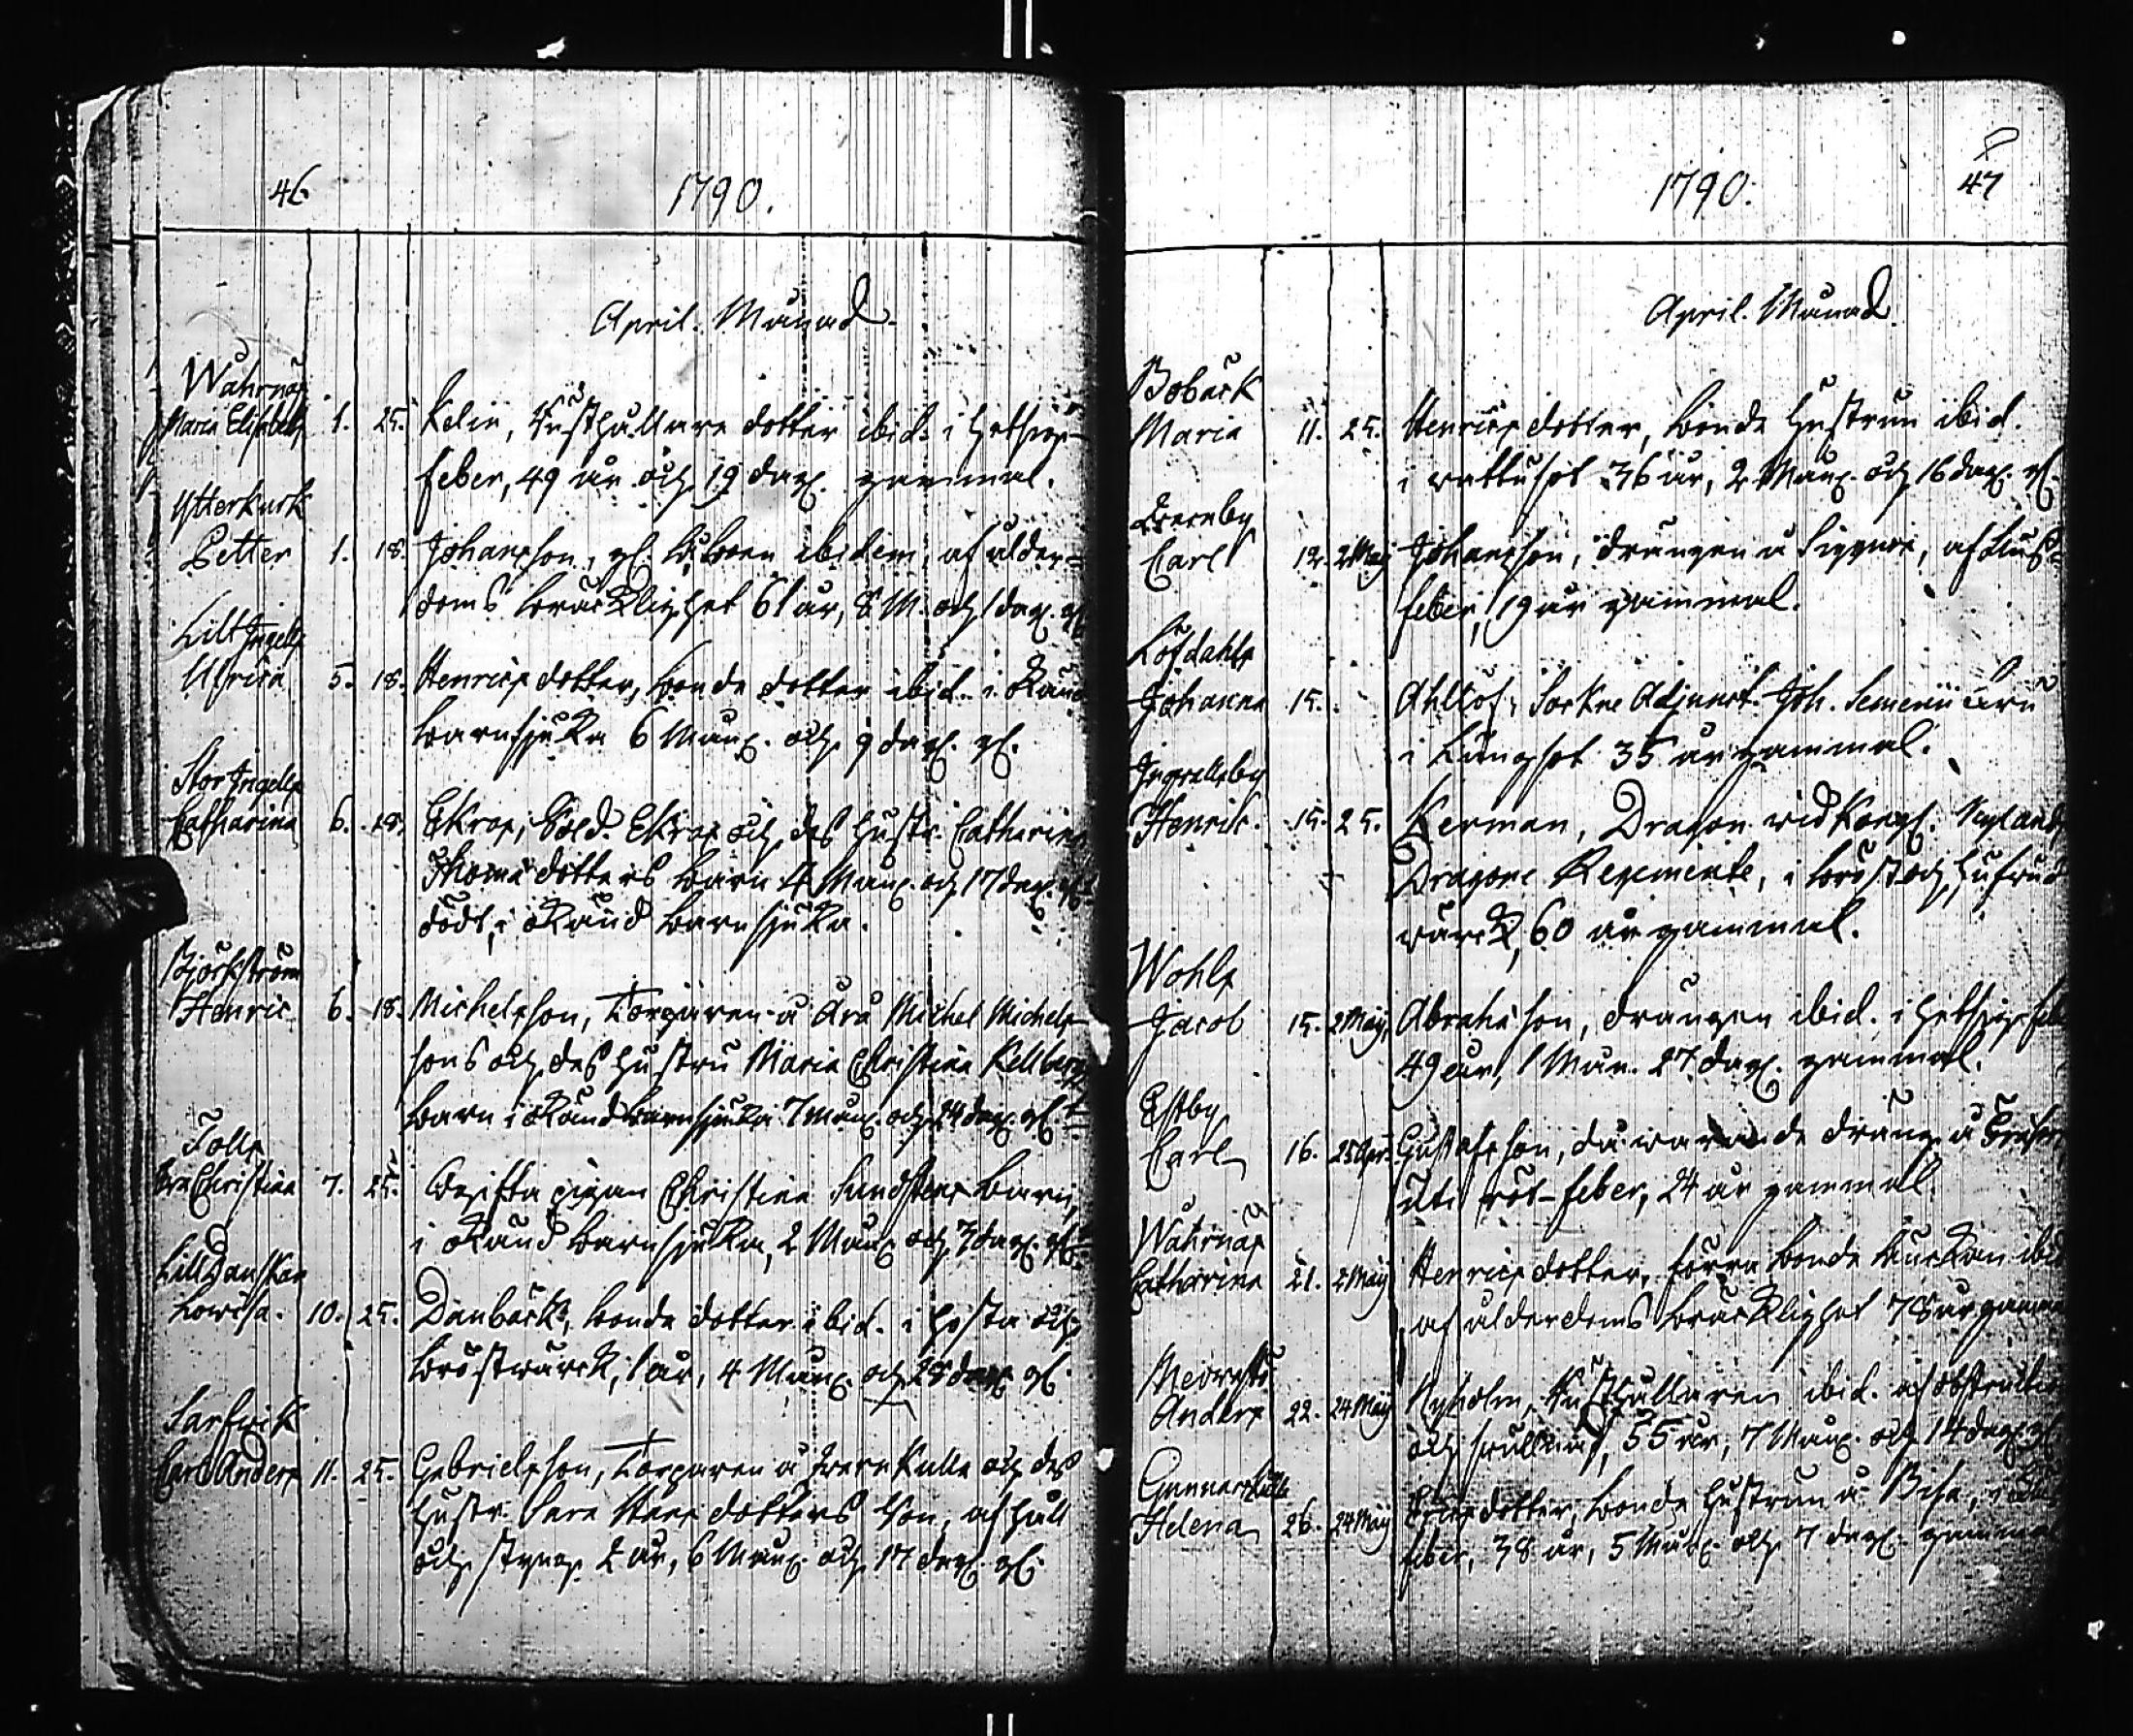 46
1790.
April. Månad.
Wahrnäs
Maria Elisabeth 1. 25. Kelin, Rusthållare dotter ibid. i hetsige
feber, 49 år och 19 dag. gammal.
Ytterkurk
Petter 1. 18. Johansson, gl. ibidem, af ålder-
doms bräcklighet 61 år, 8 M. och 1 dag. gl.
Lill Ingels
Ulrica 5. 18. Henrics dotter, bonde dotter ibid. i Okänd
barnsjuka 6 Mån. och 9 dag. gl.
Stor Ingels
Catharina 6. 18. Ekros, Sold. Ekros och des hustr. Catharina
Thomædotters barn 4 Mån. och 17 dag. gl.
död, i okänd barnsjuka.
Björkström
Henric 6. 18. Michelsson, Torparen å Årå Michel Michels-
sons och des hustru Maria Christina Kellbergs
barn i okänd barnsjuka 7 Mån. och 24 dag. gl.
Tolls
Christina 7. 25. Ogifta pigan Christina Sundstens barn,
i okänd barnsjuka, 2 Mån. och 7 dag. gl.
Lill Danskar
Lowisa. 10. 25. Danbäck, bonde dotter ibid. i hosta och
bröstwärck, 1 år, 4 Mån. och 28 dag. gl.
Sarfwik
Carl Anders 11. 25. Gabrielsson, Torparen å Kulla och des
hustr. Sara dotters Son, af håll
och styng 2 år, 6 Mån. och 17 dag. gl.
47
1790.
April. Månad.
Bobäck
Maria 11. 25. Henrics dotter, bonde hustrun ibid.
i wattusot 36 år, 2 Mån. och 16 dag. gl.
Carl 12. 2 Maj Johansson, drängen å Sigguris, af
feber, 19 år gammal.
Löfdahls
Johanna 15. Ahllöf, Sockne Adjunct. Joh.
i Lungsot 35 år gammal.
Ingvallsby
Henric. 15. 25. Kerman, Dragon wid Kongl. Nylands
Dragone Regemente, i bröst och hufwud
wärck, 60 år gammal.
Wohls
Jacob 15. 2 Maij, Abrahãson, drängen ibid. i hetsige feb
49 år, 1 Mån. 27 dag. gammal.
Estby
Carl 16. 25 Apr. Gustafsson, då warande dräng å
uti röt-feber, 24 år gammal.
Wahrnäs
Catharina 21. 2 Maij Henrics dotter, förra bonde Enckan ibid
af ålderdoms bräcklighet 78 år gamma
Anders 22. 24 Maij Nyholm, Rusthållaren ibid. af obstruction
och swullnad, 55 år, 7 Mån. och 14 dag. gl.
Gunnarskulla
Helena 26. 24 Maij Ericsdotter, bonde hustrun å Bisa, i
feber, 38 år, 5 Mån. och 7 dag. gammal